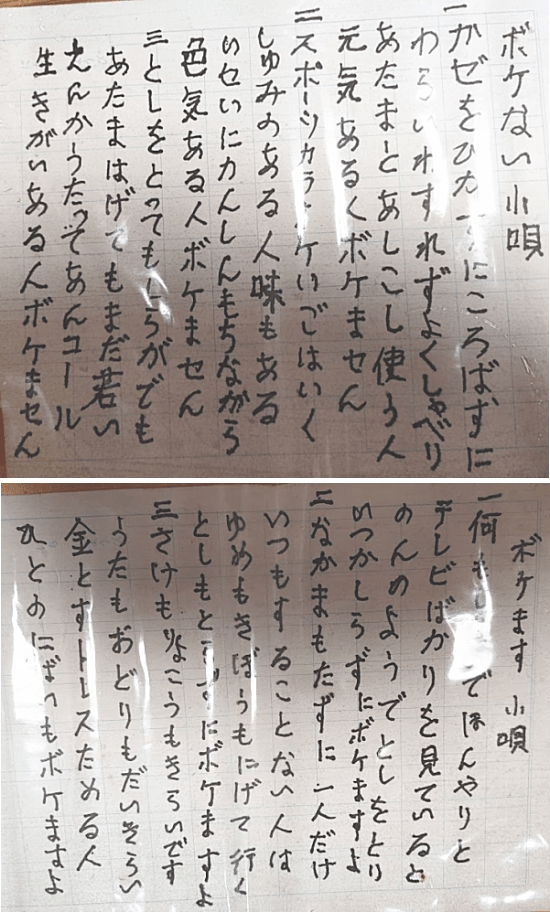 ボケない小唄
一かぜをひかずにころばずに
わらいわすれずよくしゃべり
あたまとあしこし使う人
元気ある人ボケません
二スポーツカラオケいごはいく
しゅみのある人味もある
いせいにかんしんもちながら
色気ある人ボケません
三としをとってもしらがでも
あたまはげてもまだ若い
えんかうたってあんコール
生きがいあるんボケません
ボケます小唄
一何もしでぼんやりと
テレビばかりを見ていると
のんのようでとしをとり
いつかしらずにボケますよ
二なかまもたずに一人だけ
いつもすることない人は
ゆめもきぼうもにげて行く
としもとらずにボケますよ
三さけもりよこうもきらいです
うたもおどりもだいきらい
金とすトレスためる人
ひとのにばいもボケますよ